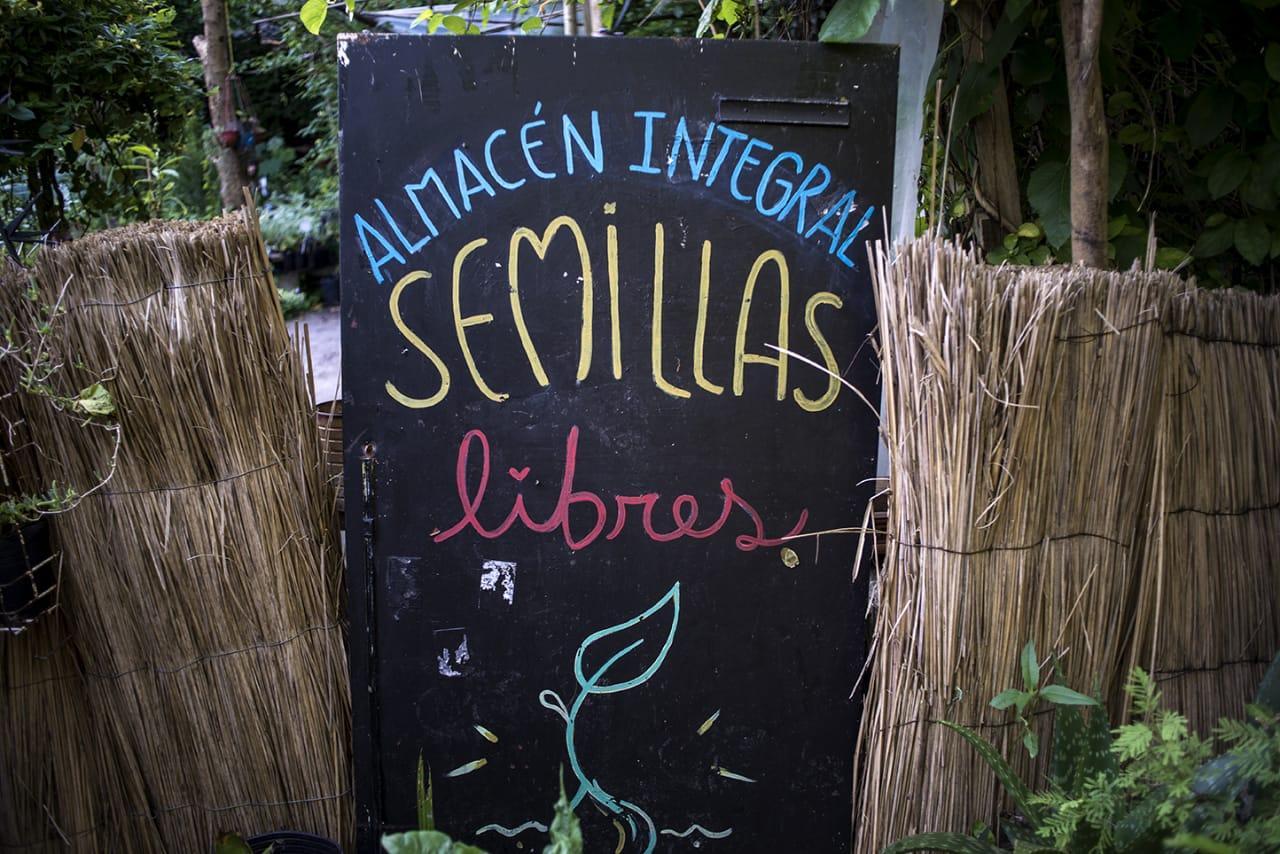 ALMACÉN INTEGRAL
SEMILLAS
libres